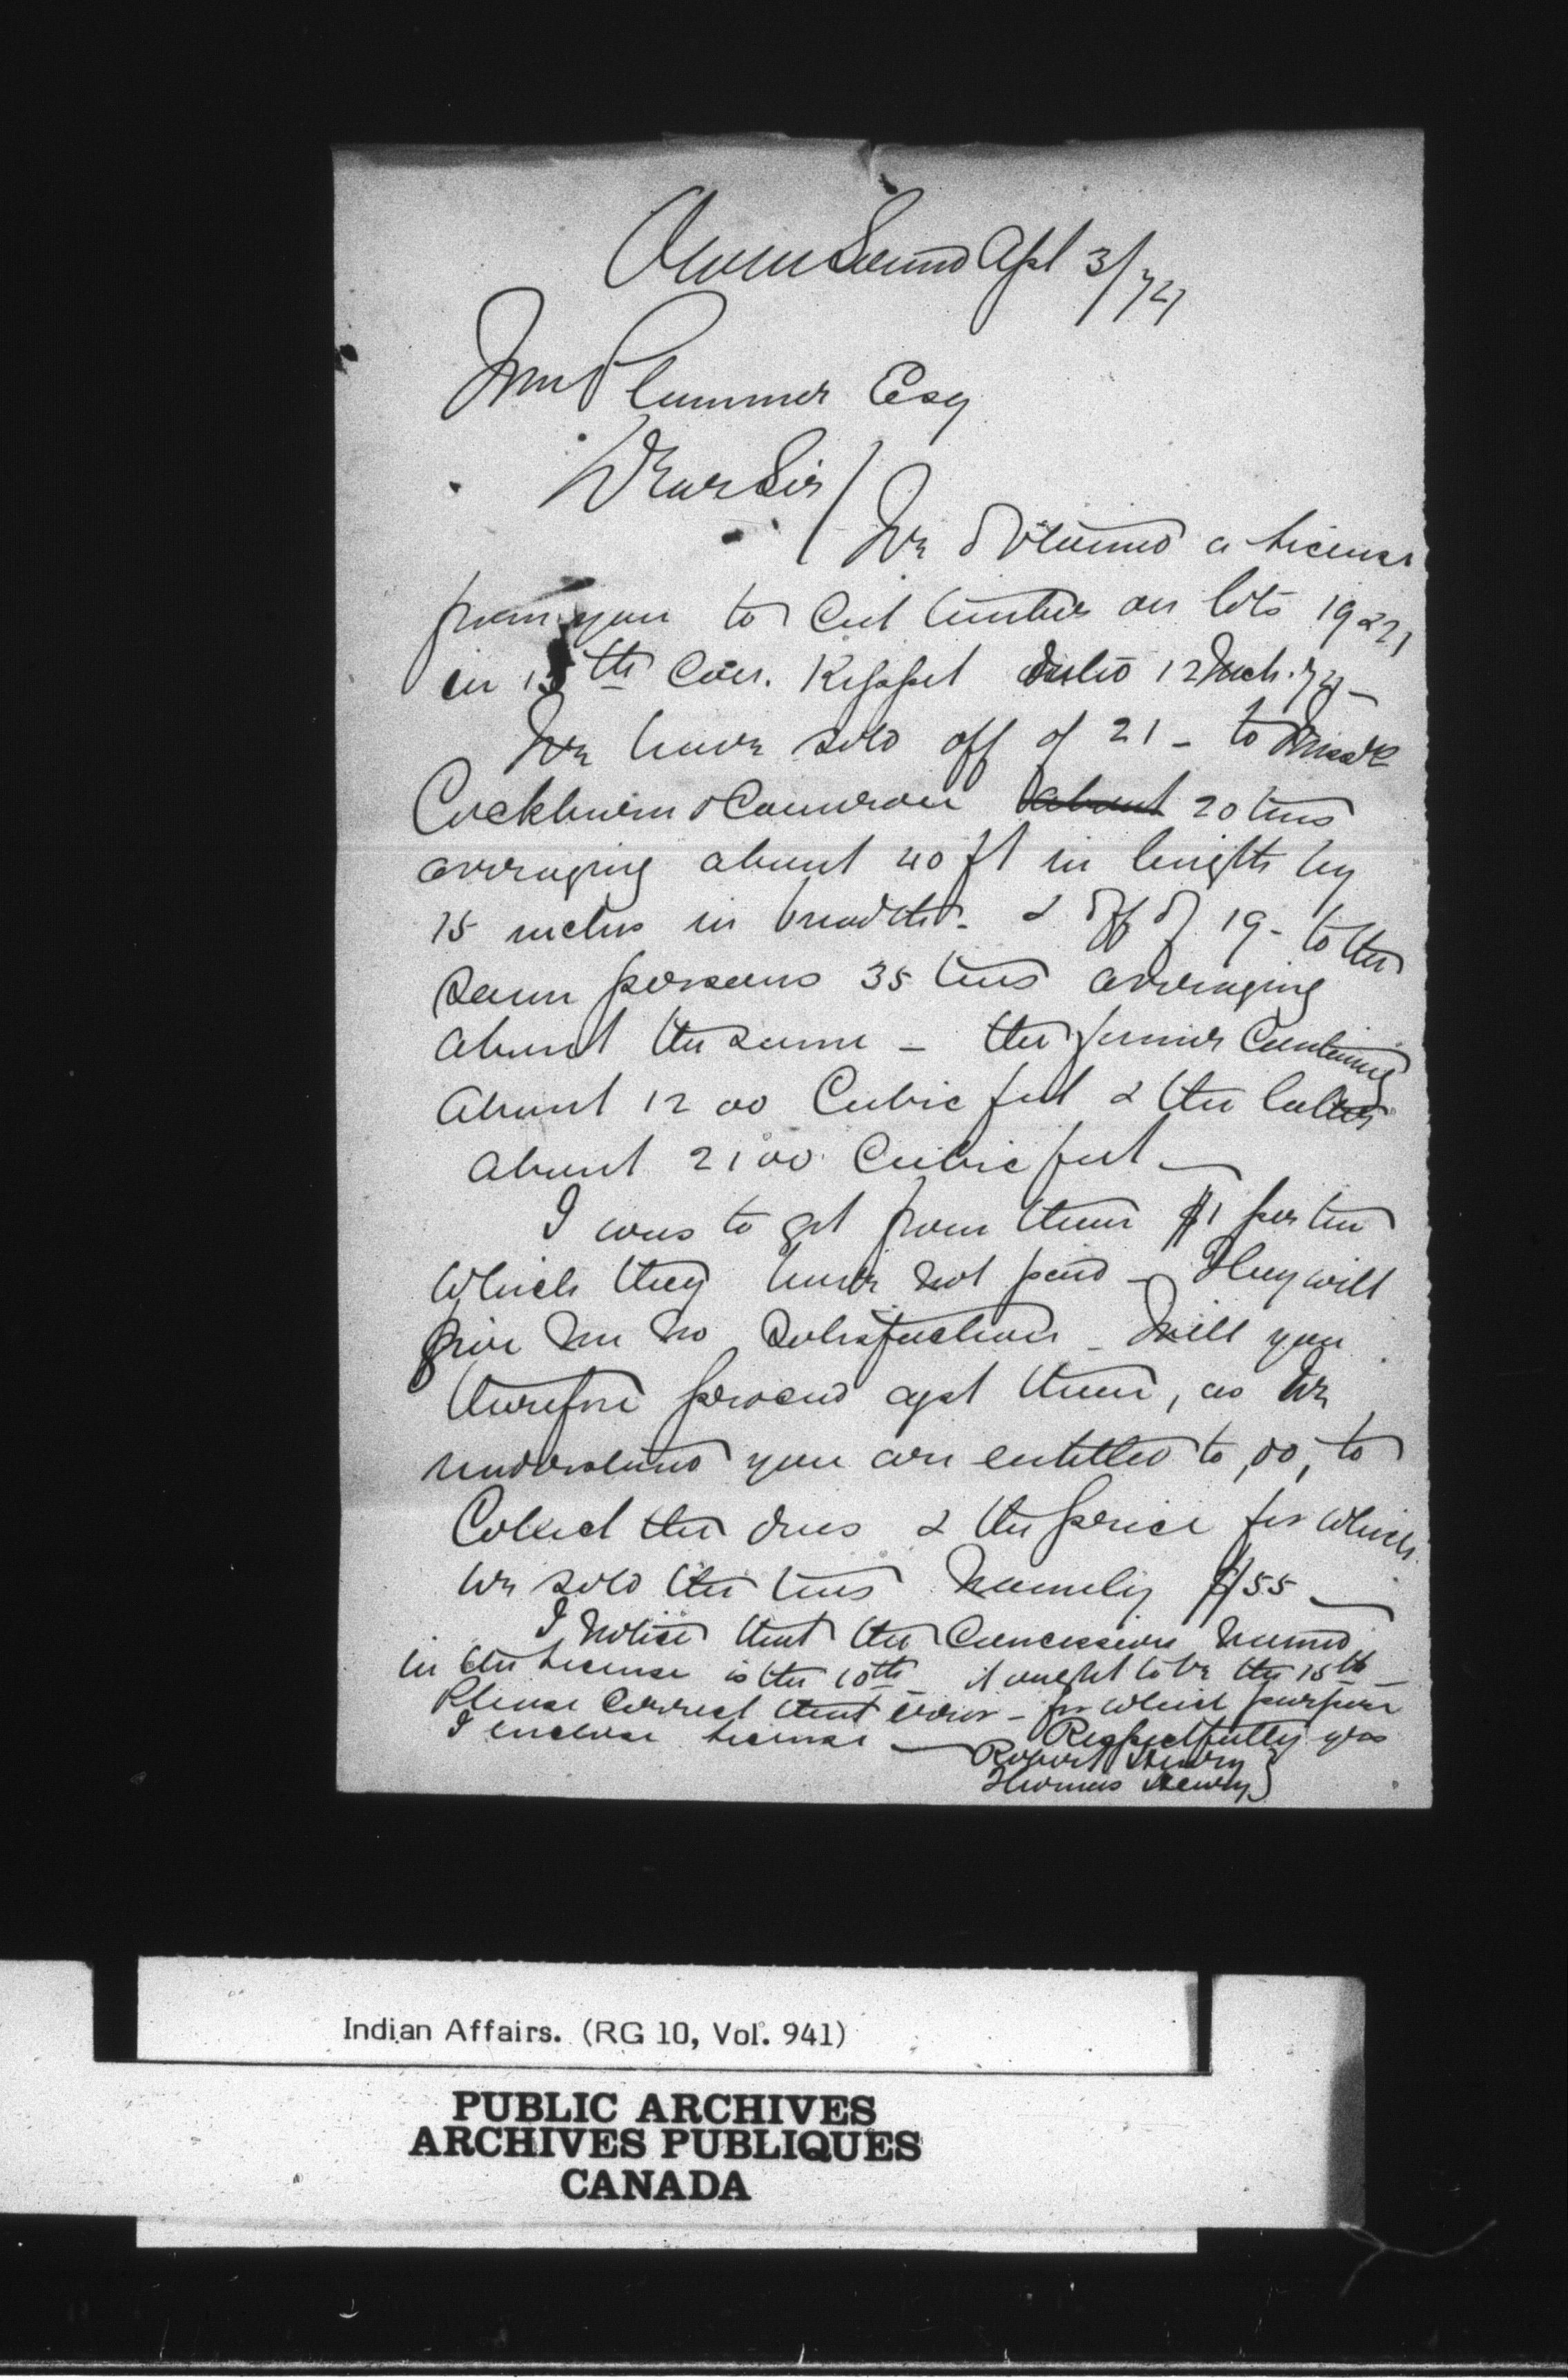 Owen Sound Apl 3/74
Wm Plummer Esq
Dear Sir/
We obtained a license
from you to cut timber on lots 19 & 21
in 15th Con. Keppel dated 12 Mch. 74 -
We have sold off of 21 - to
Cockburn & Cameron about 20 trees
averaging about 40 ft in length by
15 inches in breadth. & off of 19 - to the
same persons 35 trees averaging
about the same - the former containing
about 1200 Cubic feet & the latter
about 2100 Cubic feet -
I was to get from them $1 per tree
which they have not paid - They will
give me no satisfaction - Will you
therefore proceed agst them, as we
understand you are entitled to, do, to
Collect the dues & the price for which
we sold the trees namely $55 -
I notice that the Concession named
in the license is the 10th - it ought to be the 15th -
Please correct that error - for which purpose
I enclose license - Respectfully yrs
Robert Henry }
Thomas Henry }
Indian Affairs. (RG 10, Vol. 941)
PUBLIC ARCHIVES
ARCHIVES PUBLIQUES
CANADA